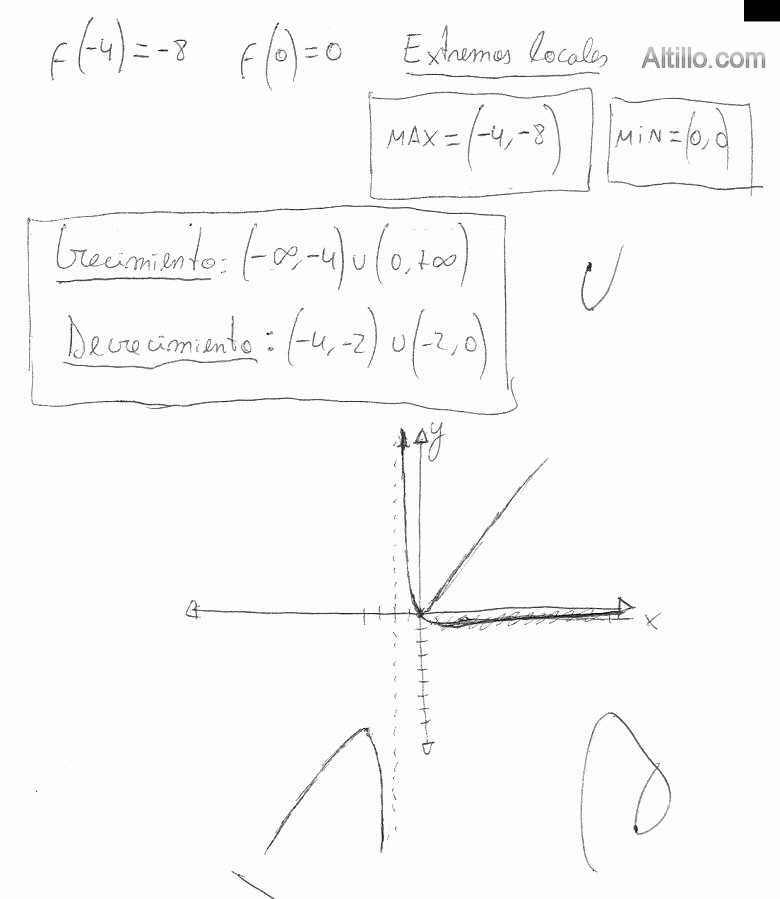 F(-4)=-8 F(0)=0 Extremos locales
Altillo.com
MAX=(-4,-8) MiN=(0,0)
Crecimiento: (-∞,-4)∪(0,+∞)
Decrecimiento: (-4,-2)∪(-2,0)
y
x